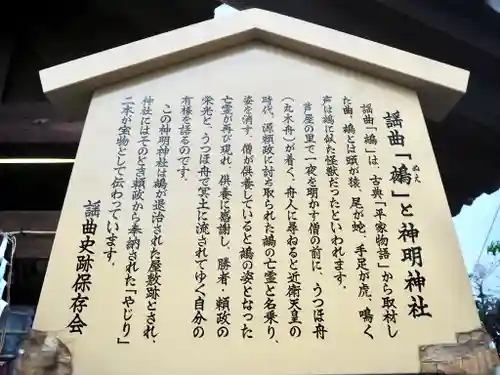 謡曲「鵺」と神明神社
ぬえ
謡曲「鵺」は、古典『平家物語』から取材し
た曲。鵺とは頭が猿、尾が蛇、手足が虎、鳴く
声は鵺に似た怪獣だったといわれます。
芦屋の里で一夜を明かす僧の前に、うつほ舟
(丸木舟)が着く。舟人に尋ねると近衛天皇の
時代、源頼政に討ち取られた鵺の亡霊と名乗り、
姿を消す。僧が供養していると鵺の姿となった
亡霊が再び現れ、供養に感謝し、勝者・頼政の
栄光と、うつほ舟で冥土に流されてゆく自分の
有様を語るのです。
この神明神社は鵺が退治された屋敷跡とされ、
神社にはそのとき頼政から奉納された「やじり」
二本が宝物として伝わっています。
謡曲史跡保存会